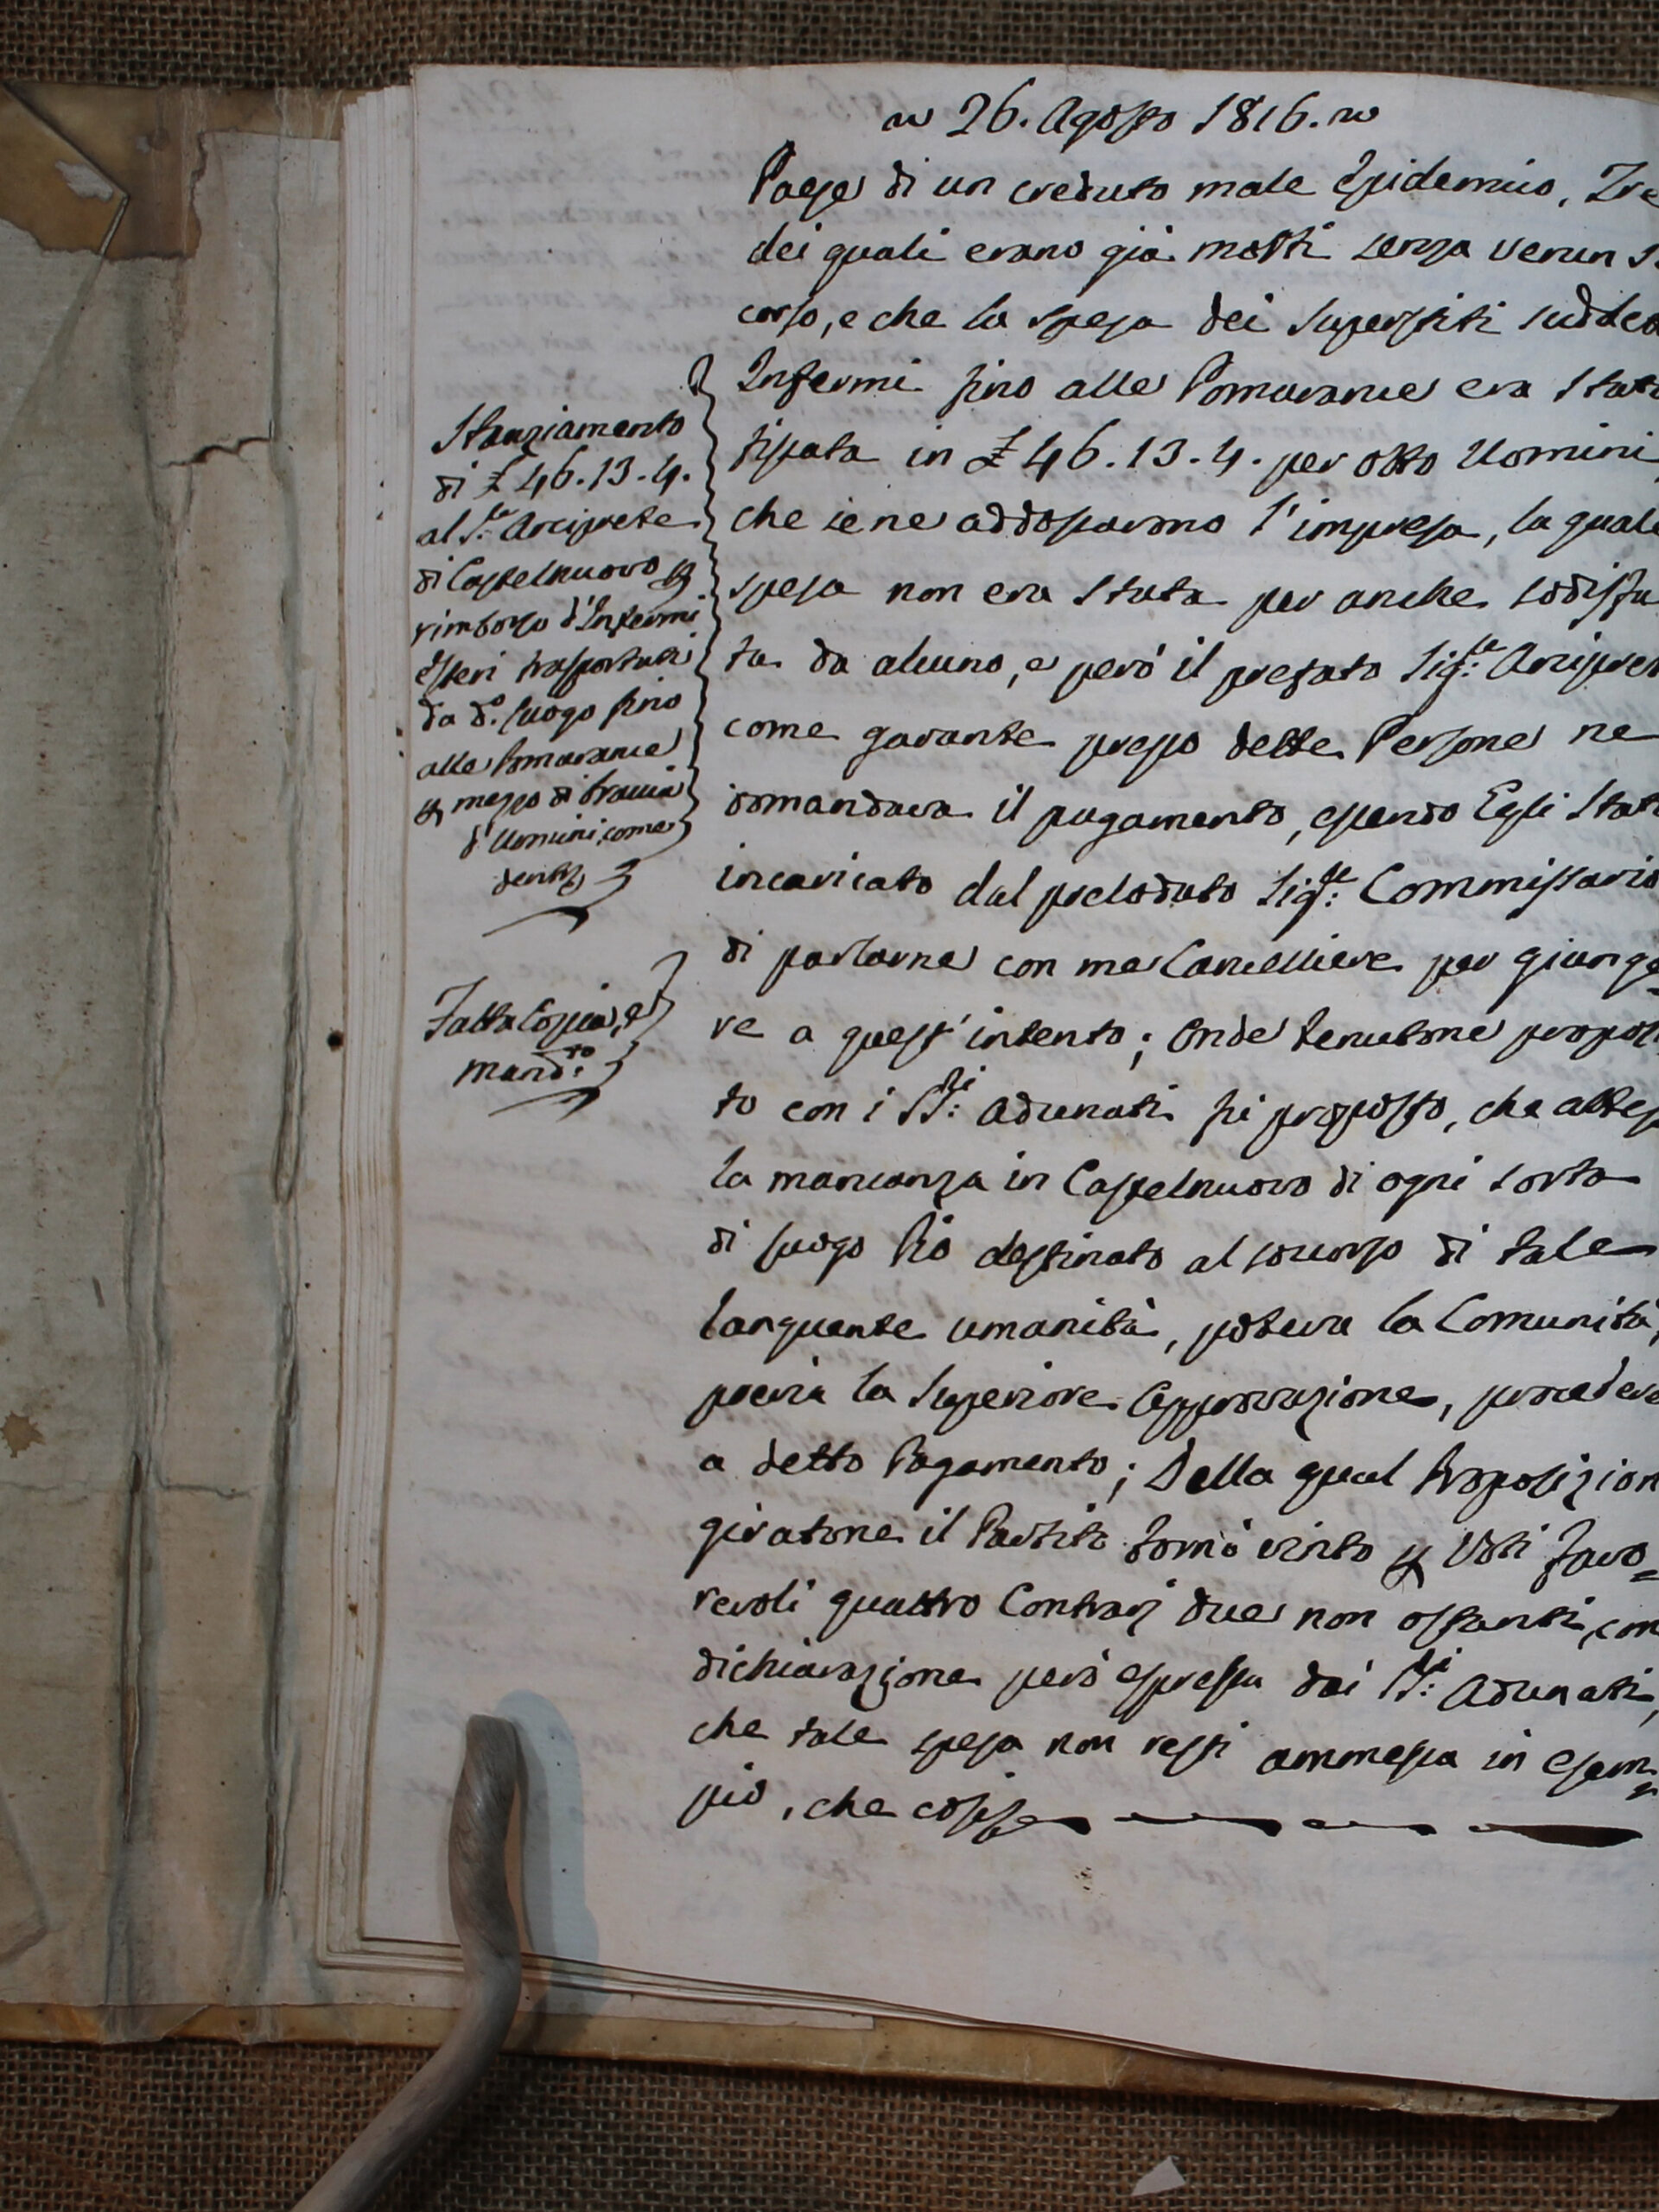 26. Agosto 1816.
Paese di un creduto male Epidemico, Tre
dei quali erano già morti senza verun s
corso, e che la spesa dei Superstiti sudde
Infermi fino alle Pomarance era stat
fissata in £ 46.13.4. per otto Uomini
che se ne addossarono l'impresa, la quale
spesa non era stata per anche sodisfa
ta da alcuno, e però il prefato Sig:re Arcipret
come garante presso dette Persone ne
domandava il pagamento, essendo Egli stat
incaricato dal prelodato Sig:re Commissario
di parlarne con me Cancelliere per giunge
re a quest'intento; Onde tenutone proposi
to con i SS:ri Adunati fù proposto, che attes
la mancanza in Castelnuovo di ogni sorta
di luogo Pio destinato al soccorso di tale
languente umanità, poteva la Comunità,
previa la Superiore Approvazione, procedere
a detto Pagamento; Della qual Proposizion
giratone il Partito tornò vinto p Voti favo=
revoli quattro Contrarj due non ostanti, con
dichiarazione però espressa dai SS:ri Adunati,
che tale spesa non resti ammessa in esem=
pio, che così
Stanziamento
di £ 46.13.4.
al S:re Arciprete
di Castelnuovo p
rimborso d'Infermi
Esteri trasportati
da d.o luogo fino
alle Pomarance
p mezzo di braccia
d'Uomini, come
Fatta Copia, e
mand:to